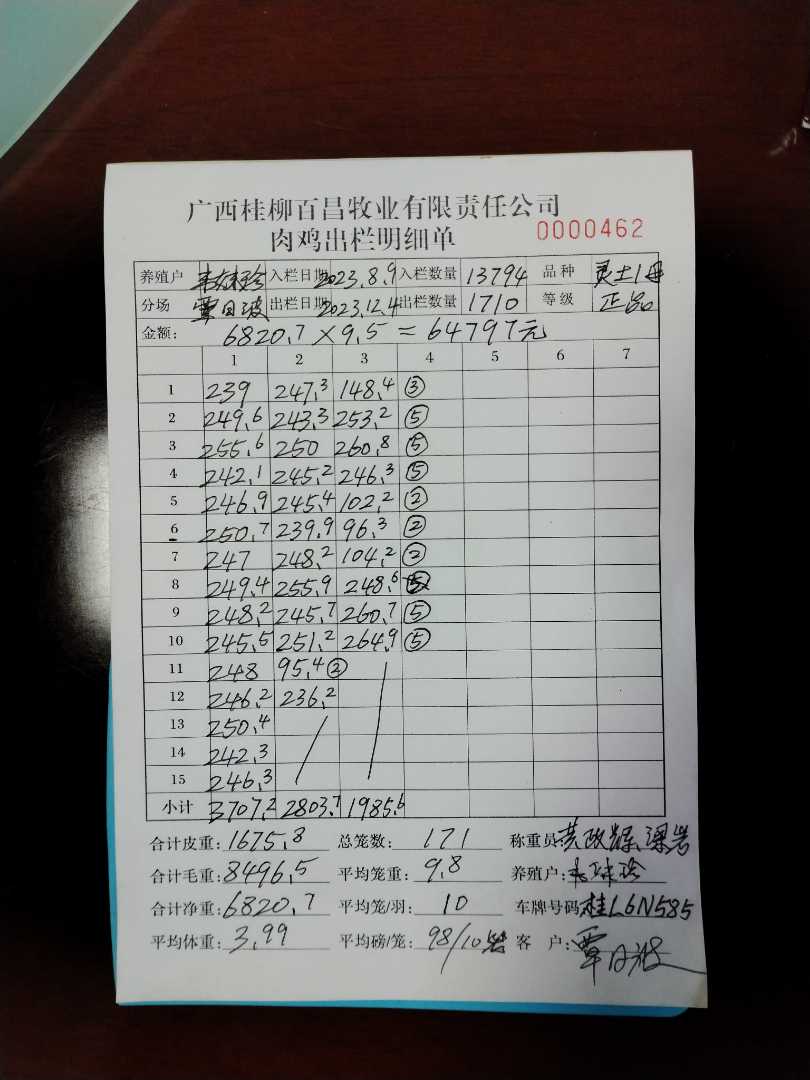 广西桂柳百昌牧业有限责任公司
肉鸡出栏明细单 0000462
养殖户 入栏日期 2023.8.9 入栏数量 13794 品种 灵土1号
分场 覃日波 出栏日期 2023.12.4 出栏数量 1710 等级 正品
金额: 6820.7×9.5=64797元
1 2 3 4 5 6 7
1 239 247.3 148.4 ③
2 249.6 243.3 253.2 ⑤
3 255.6 250 260.8 ⑤
4 242.1 245.2 246.3 ⑤
5 246.9 245.4 102.2 ②
6 250.7 239.9 96.3 ②
7 247 248.2 104.2 ②
8 249.4 255.9 248.6 ⑤
9 248.2 245.7 260.7 ⑤
10 245.5 251.2 264.9 ⑤
11 248 95.4 ②
12 246.2 236.2
13 250.4
14 242.3
15 246.3
小计 3707.2 2803.7 1985.6
合计皮重: 1675.8 总笼数: 171 称重员:
合计毛重: 8496.5 平均笼重: 9.8 养殖户:
合计净重: 6820.7 平均笼/羽: 10 车牌号码: 桂L6N585
平均体重: 3.99 平均磅/笼: 98/10 客户: 覃日波